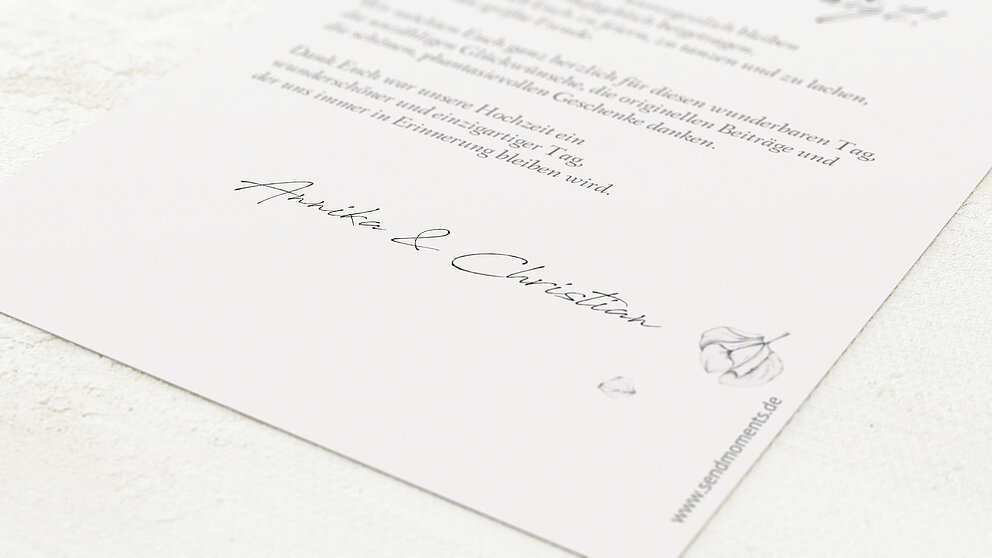 bleiben
zu lachen, zu tanzen und zu lachen,
Euch ganz herzlich für diesen wunderbaren Tag,
die unzähligen Glückwünsche, die originellen Beiträge und
die schönen, phantasievollen Geschenke danken.
Dank Euch war unsere Hochzeit ein
wunderschöner und einzigartiger Tag,
der uns immer in Erinnerung bleiben wird.
Annika & Christian
www.sendmoments.de